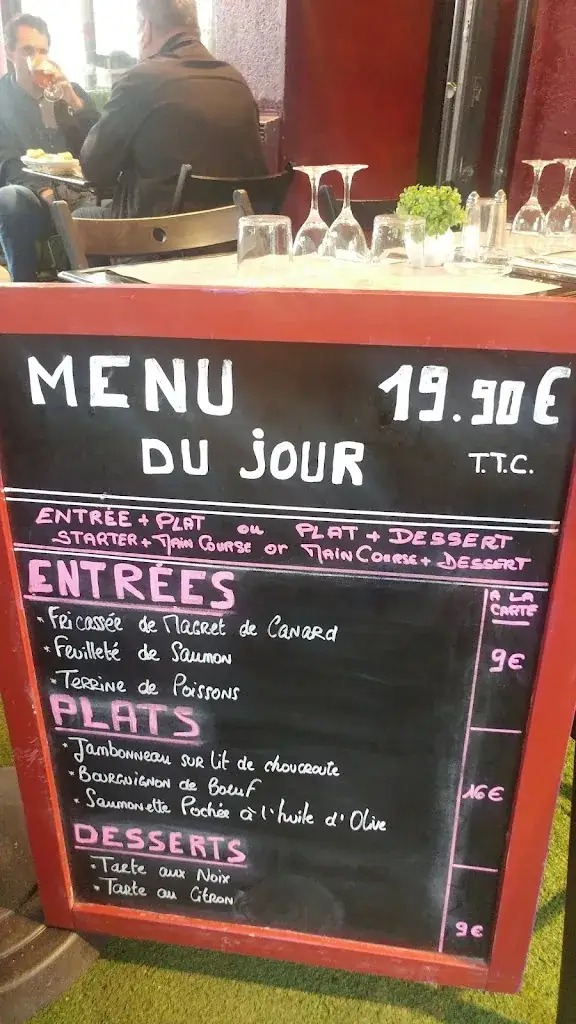 MENU 19.90€
DU JOUR T.T.C.
ENTRÉE + PLAT ou PLAT + DESSERT
STARTER + MAIN COURSE or MAIN COURSE + DESSERT
ENTRÉES
A LA
CARTE
* Fricassée de Magret de Canard
* Feuilleté de Saumon
9€
* Terrine de Poissons
PLATS
* Jambonneau sur lit de choucroute
* Bourguignon de Boeuf
16€
* Saumonette Pochée à l'huile d'Olive
DESSERTS
* Tarte aux Noix
* Tarte au Citron
9€